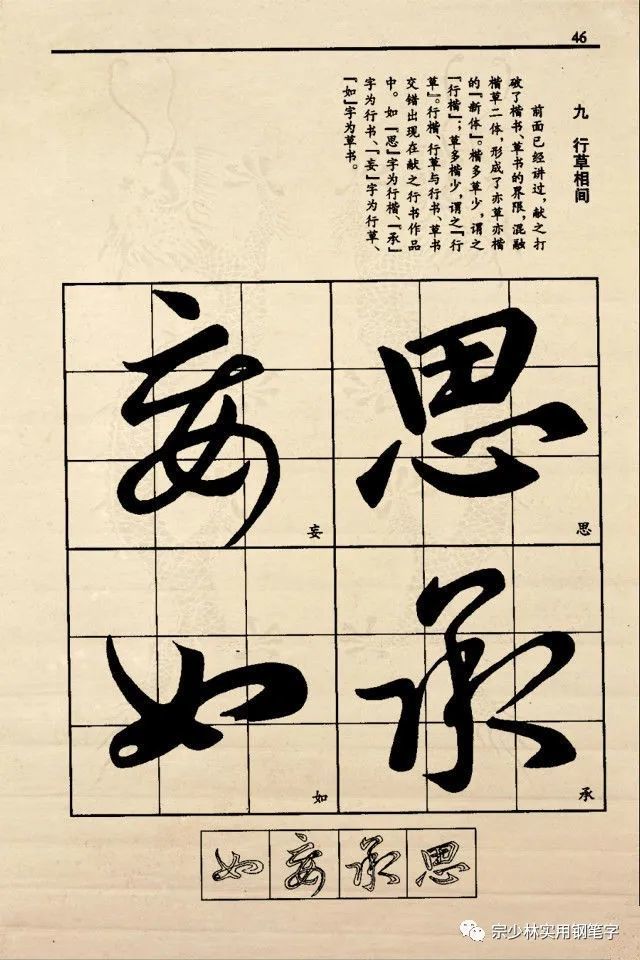 46
九 行草相间
前面已经讲过，献之打
破了楷书、草书的界限，混融
楷草二体，形成了亦草亦楷
的『新体』。楷多草少，谓之
『行楷』；草多楷少，谓之『行
草』。行楷、行草与行书、草书
交错出现在献之行书作品
中。如『思』字为行楷、『承』
字为行书、『妄』字为行草、
『如』字为草书。
思
思
承
承
妄
妄
如
如
思
承
妄
如
宗少林实用钢笔字